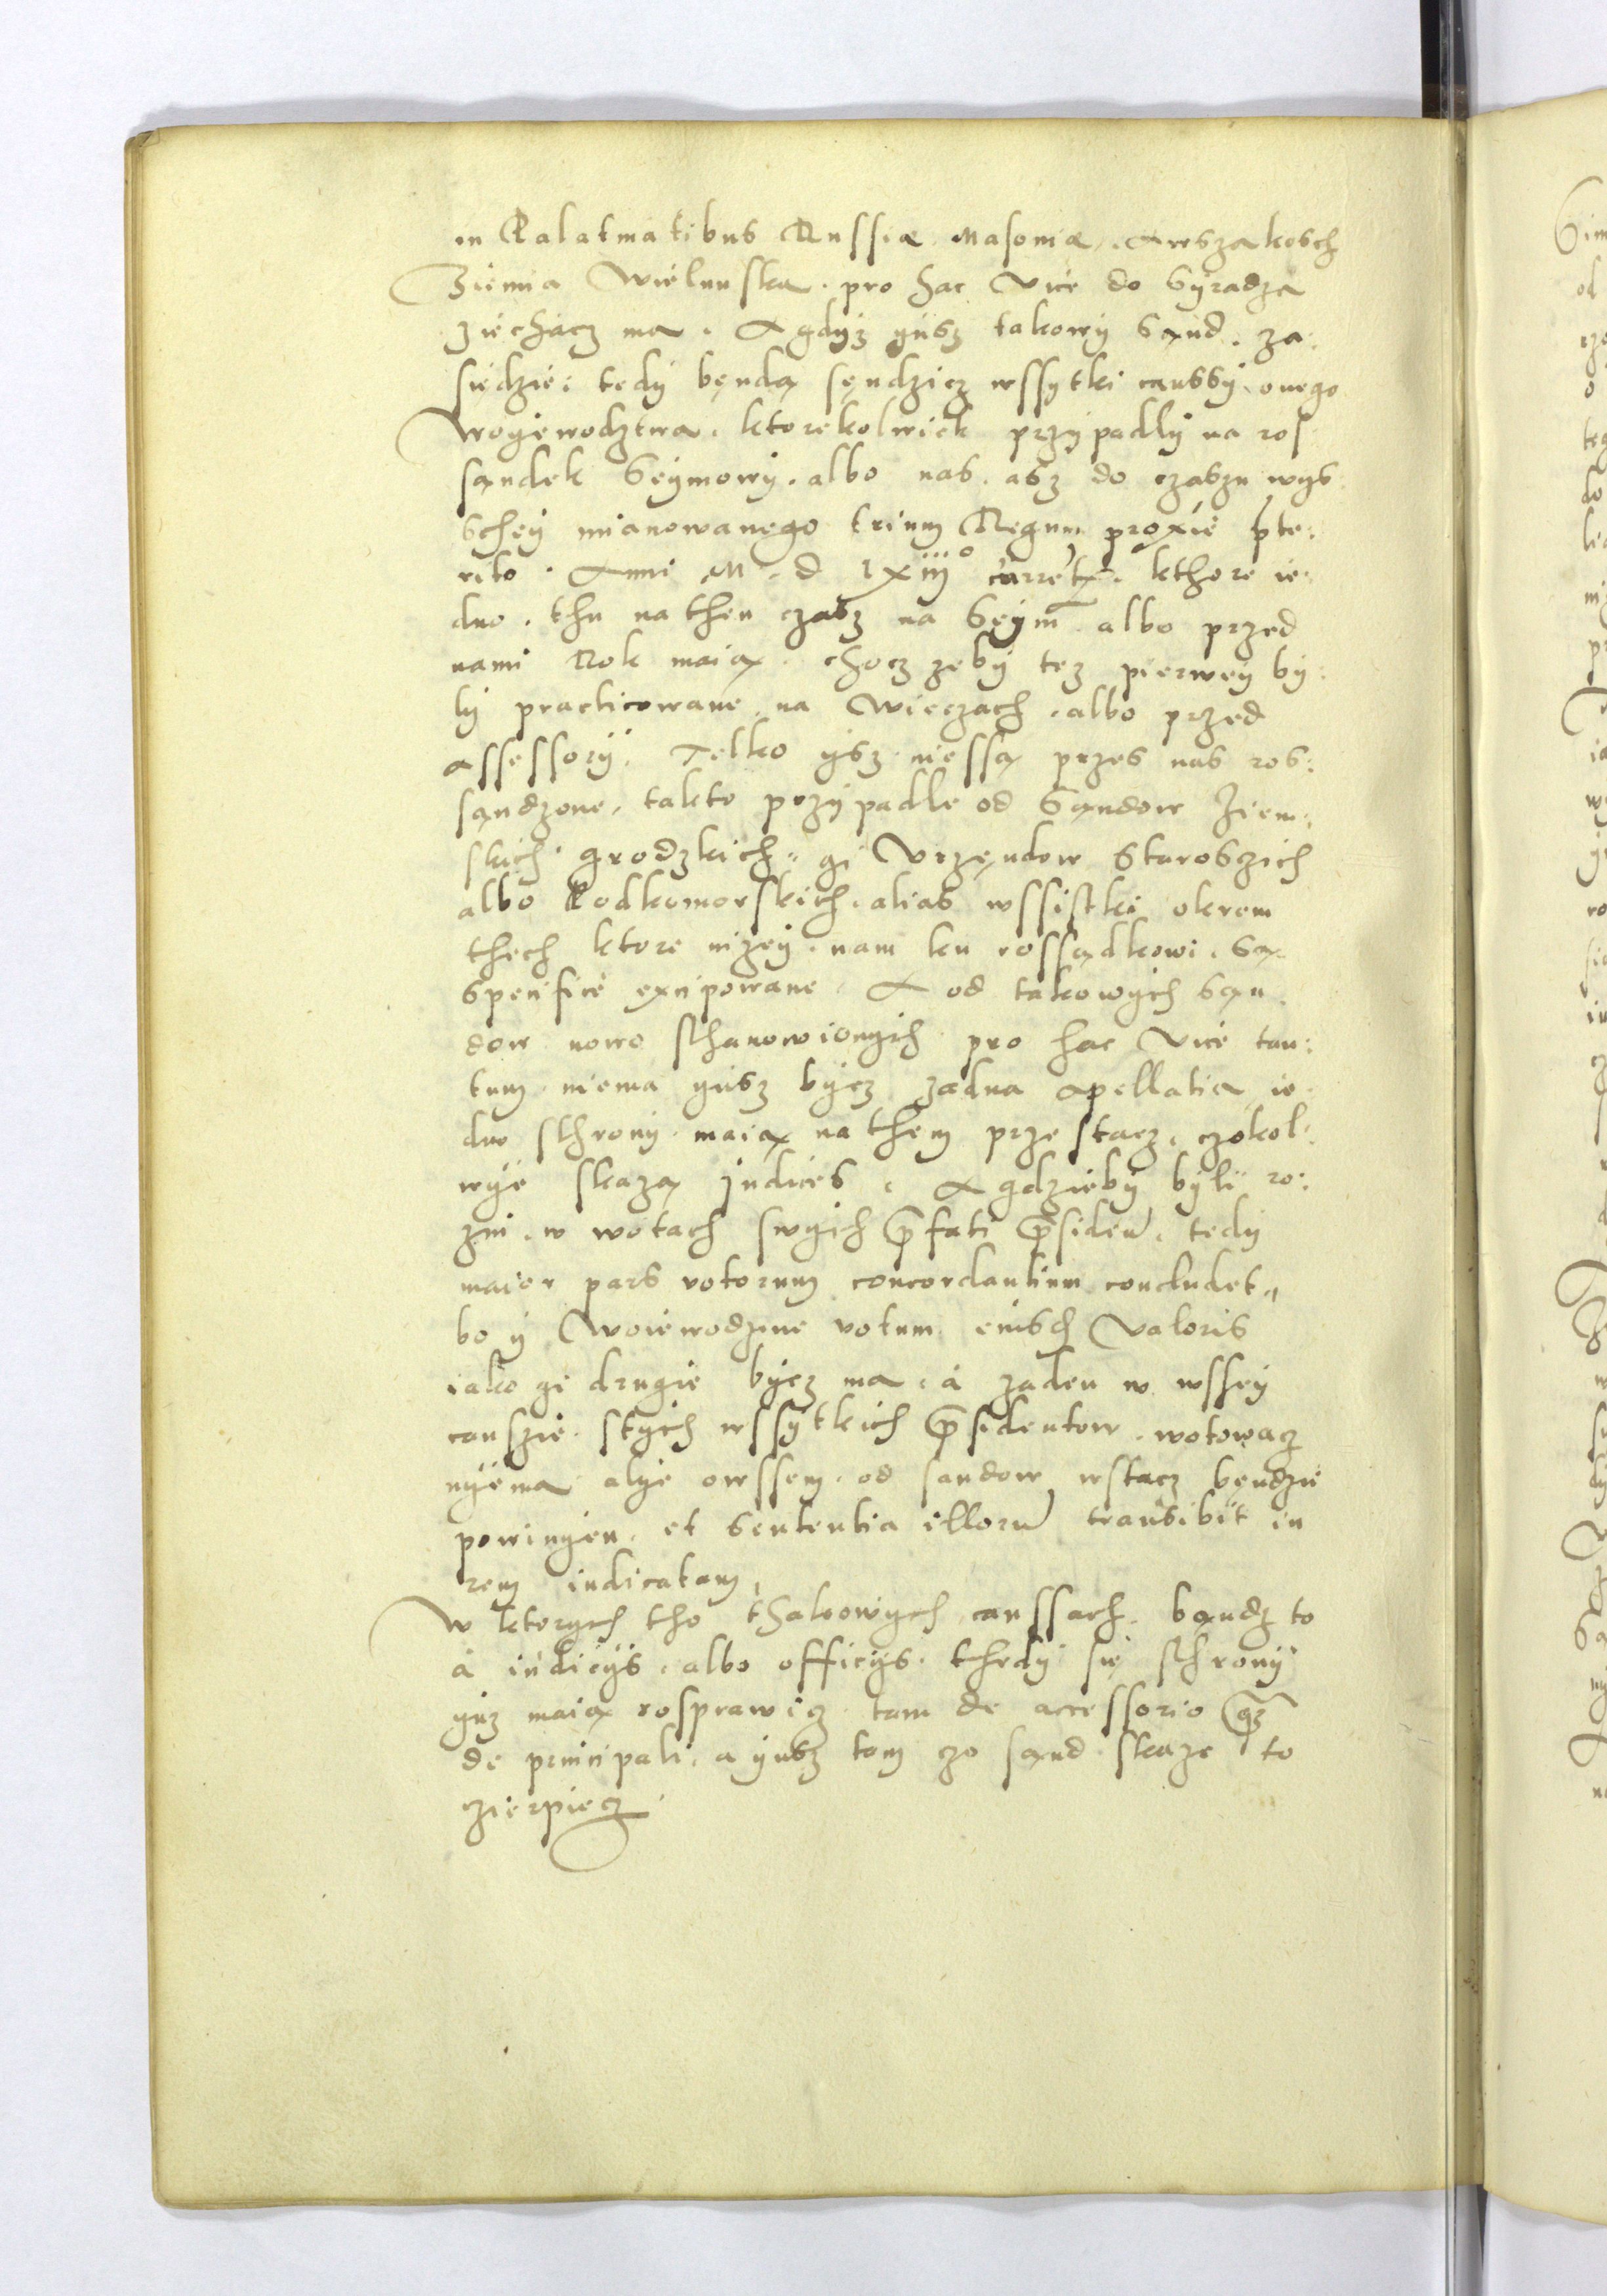 in Palatinatibus Russiæ Masoniæ, Awszakosch
Ziemia Wielunska. pro hac vice do Syradza
ziechacz ma. A gdyż yusz takowy Sąnd. za:
siędzie: tedy będą sęndzicz wssytki caussy onego
Woyewodztwa. ktorekolwiek przypadly na ros
sąndek Seymowy. albo nas. asz do czaszu wys
schey mianowanego trium Regum proxie pte:
rito. Anni M. d lxiii° curret. kthore ie:
dno. thu na then czasz na Seym albo przed
nami Rok maią. chocz zeby tez pierwey by:
ly practicowane na Wieczach. albo przed
assessory. Telko ysz niessą przes nas ros:
sąndzone, takto przypadle od Sąndow Ziem:
skich grodzkich, gi Vrzęndow Staroszich
albo Podkomorskich. alias wssistki okrom
thech ktore nizey. nam ku rossądkowi. Są
specifice excipowane. A od takowych Sąn
dow nowo sthanowionych pro hac vice tan:
tum niema yusz bycz zadna apellatia ie
dno sthrony maią na them przestacz. czokol:
wye skazą Judices. A gdzieby byli ro:
zni. w wotach swych pfati psiden. tedy
maior pars votorum concordantium concludet
bo y Woiewodzine votum eiusd Valoris
iako gi drugie bycz ma. á zaden w wssey
causzie. stych wssytkich psidentow. wotowacz
nyema alye owssem. od sandow wstacz bendzie
powinyen. et sententia illoru transibit in
rem iudicatam,
W ktorych tho thakowych caussach. bąndz to
á iudicys. albo officys. thedy się sthrony
yuz maią rosprawicz tam de accessorio qz
de principali. a yusz tem czo sąnd skaze to
czierpiecz.